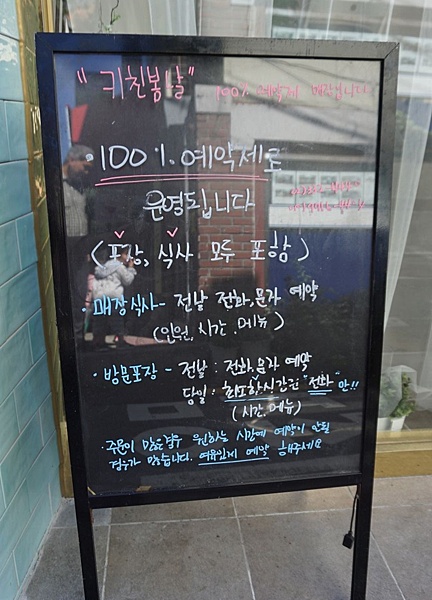 "키친봄날" 100% 예약제 매장입니다
·100%. 예약제로
운영됩니다
(포장, 식사 모두 포함)
·매장식사- 전날 전화,문자 예약
(인원, 시간.메뉴)
·방문포장 - 전날 : 전화,문자 예약
당일 : 최소한,시간전 "전화"만!!
(시간.메뉴)
·주문이 많은경우 원하는 시간에 예약이 안될
경우가 많습니다. 여유있게 예약 해주세요